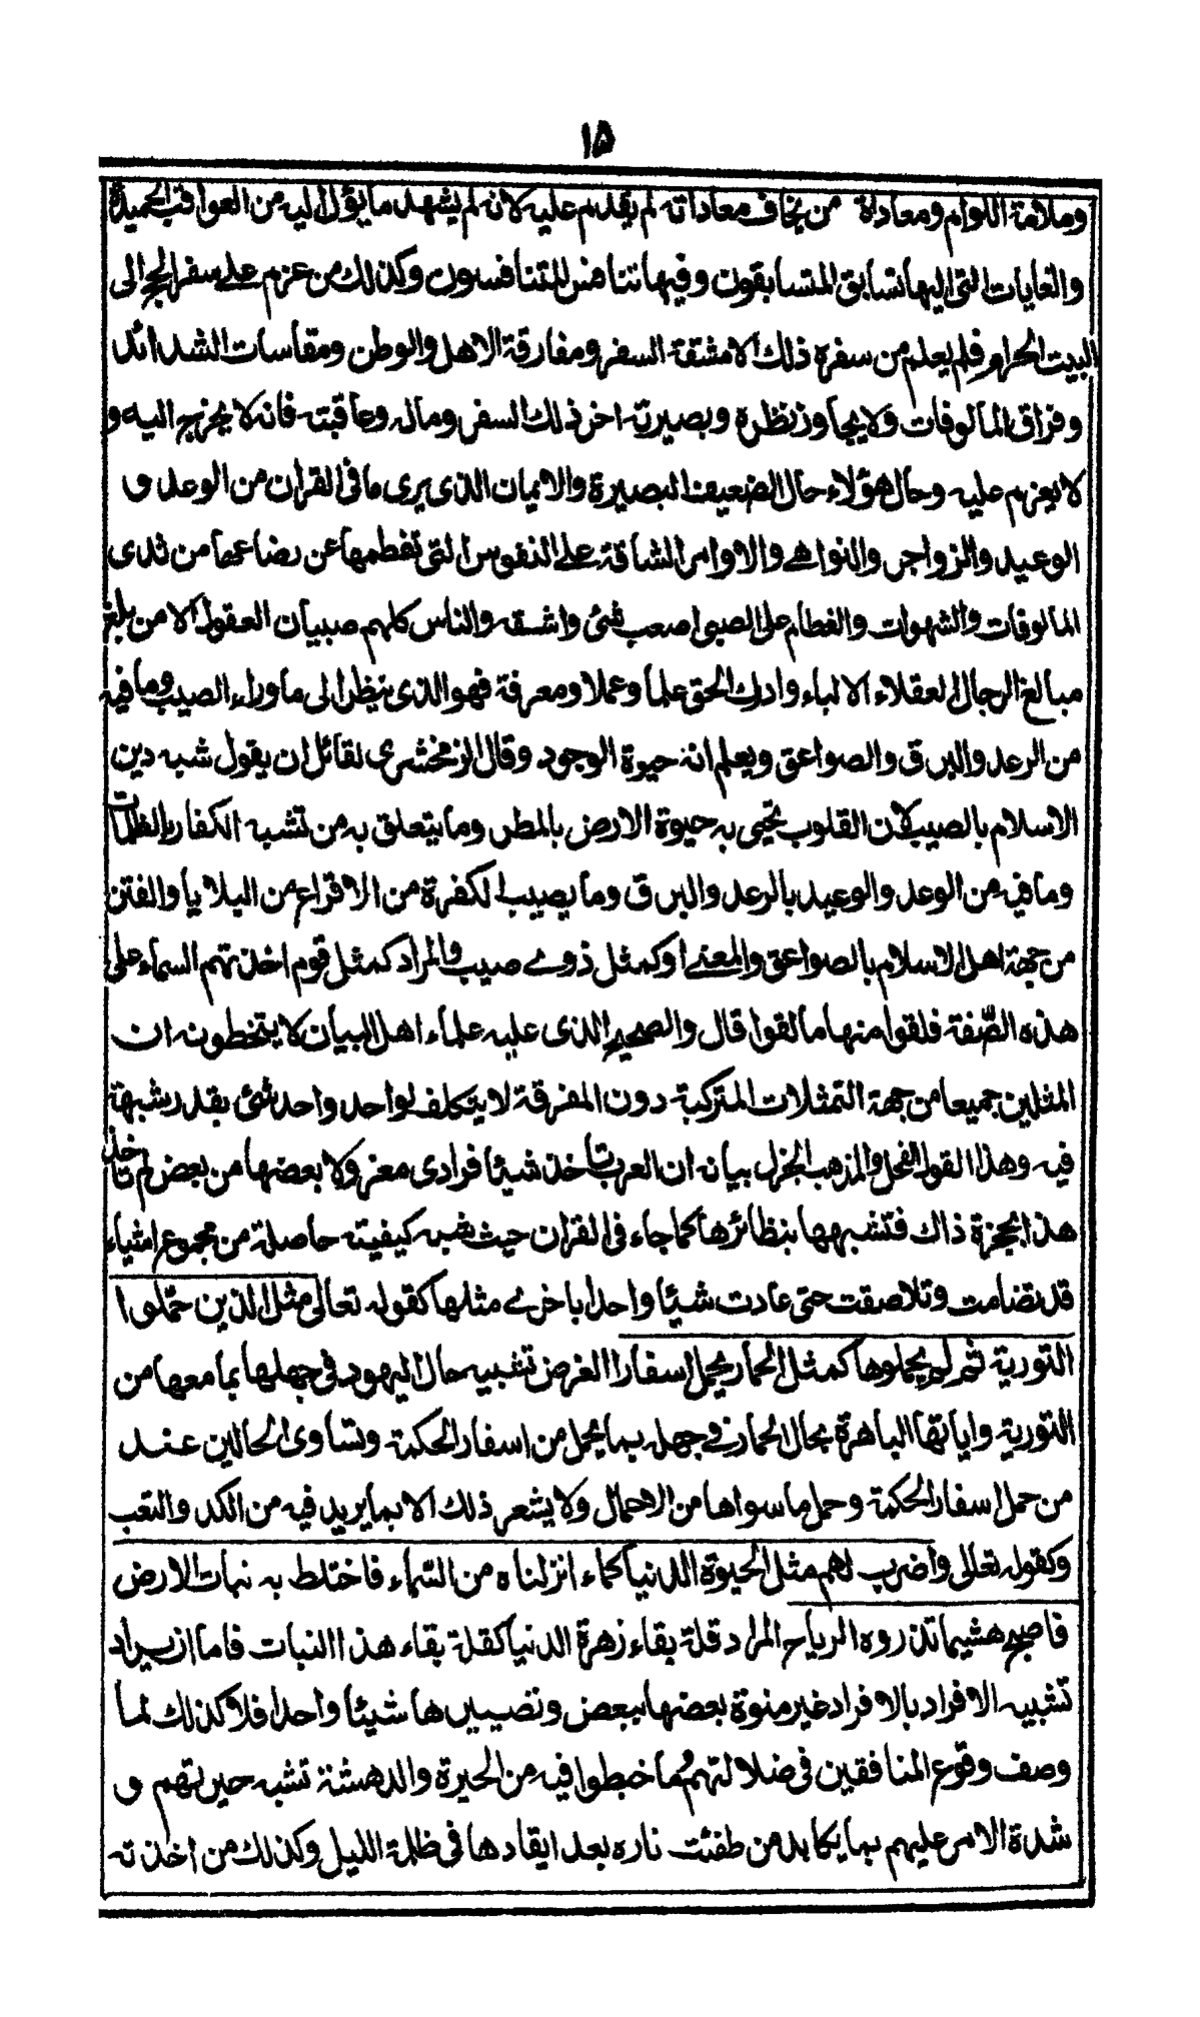 ۱۵
وملامة اللوام ومعاداة من يخاف معاداته لم يقدم عليه لانه لم يشهد ما يؤل اليه من العواقب الحميدة
والغايات التى اليها تسابق المتسابقون وفيها تنافس المتنافسون وكذلك من عزم على سفر الحج الى
البيت الحرام فلم يعلم من سفره ذلك الا مشقة السفر ومفارقة الاهل والوطن ومقاسات الشدائد
وفراق المالوفات ولا يجاوز نظره وبصيرته اخر ذلك السفر وماله وعاقبته فانه لا يخرج اليه و
لا يعزم عليه وحال هؤلاء حال الضعيف البصيرة والايمان الذى يرى ما فى القران من الوعد و
الوعيد والزواجر والنواهي والاوامر الشاقة على النفوس التى تفطمها عن رضاعها من ثدى
المالوفات والشهوات والفطام على الصبى اصعب شئ واشقه والناس كلهم صبيان العقول الا من بلغ
مبالغ الرجال العقلاء الالباء وادرك الحق علما وعملا ومعرفة فهو الذى ينظر الى ما وراء الصيب وما فيه
من الرعد والبرق والصواعق ويعلم انه حيوة الوجود وقال الزمخشرى لقائل ان يقول شبه دين
الاسلام بالصيب لان القلوب تحيى به حيوة الارض بالمطر وما يتعلق به من تشبه الكفار بالظلمات
وما فيه من الوعد والوعيد بالرعد والبرق وما يصيب الكفرة من الافزاع من البلايا والفتن
من جهة اهل الاسلام بالصواعق والمعنے او كمثل ذوے صيب والمراد كمثل قوم اخذتهم السماء على
هذه الصّفة فلقوا منها ما لقوا قال والصحيح الذى عليه علماء اهل البيان لا يتخطونه ان
المثلين جميعا من جهة التمثلات المتركبة دون المفرقة لا يتكلف لواحد واحد شئ بقدر شبهة
فيه وهذا القول الفحل والمذهب الجزل بيانه ان العرب تاخذ شيئا فرادى معزولا بعضها من بعض لم تاخذ
هذا بحجزة ذاك فتشبهها بنظائرها كما جاء فى القران حيث شبه كيفيته حاصلة من مجموع اشياء
قد تضامت وتلاصقت حتى عادت شيئا واحدا باخرے مثلها كقوله تعالى مثل الذين حمّلوا
التورية ثم لم يحملوها كمثل الحمار يحمل اسفارا الغرض تشبيه حال اليهود فى جهلها بما معها من
التورية واياتها الباهرة بحال الحمار فى جهله بما يحمل من اسفار الحكمة وتساوى الحالين عند
من حمل اسفار الحكمة وحمل ما سواها من الاحمال ولا يشعر ذلك الا بما يريد فيه من الكد والتعب
وكقوله تعالى واضرب لهم مثل الحيوة الدنيا كماء انزلناه من السّماء فاختلط به نبات الارض
فاصبح هشيما تذروه الرياح المراد قلة بقاء زهرة الدنيا كقلة بقاء هذا النبات فاما ان يراد
تشبيه الافراد بالافراد غير منوة بعضها ببعض وتصييرها شيئا واحدا فلا وكذلك لما
وصف وقوع المنافقين فى ضلالتهم وما خبطوا فيه من الحيرة والدهشة تشبه حيرتهم و
شدة الامر عليهم بما يكابد من طفئت ناره بعد ايقادها فى ظلمة الليل وكذلك من اخذته